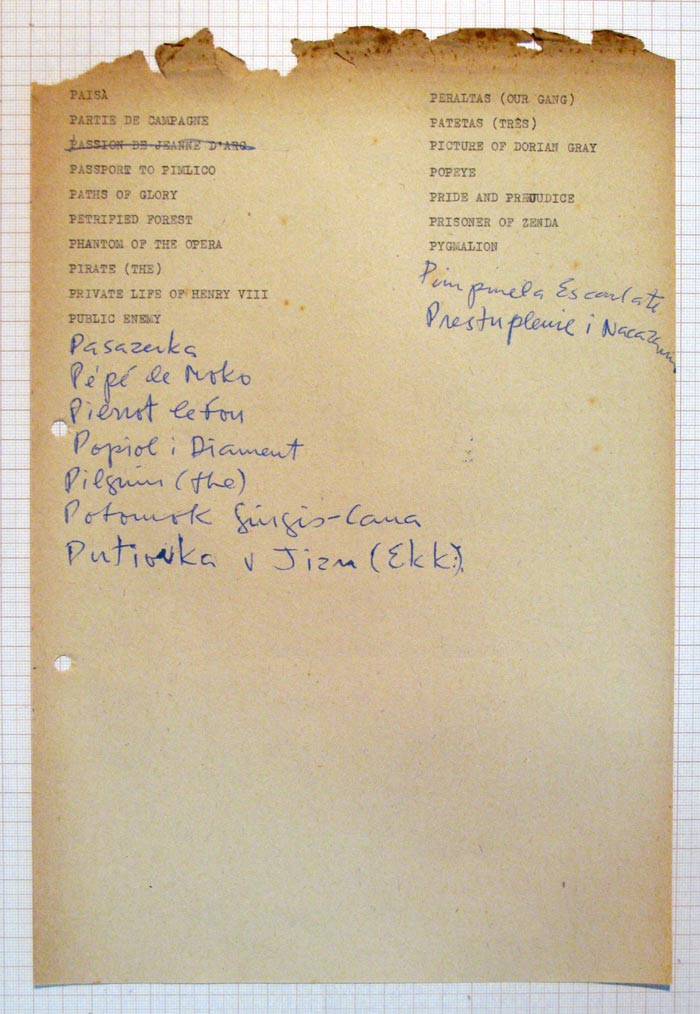 PAISÀ
PARTIE DE CAMPAGNE
PASSION DE JEANNE D'ARC
PASSPORT TO PIMLICO
PATHS OF GLORY
PETRIFIED FOREST
PHANTOM OF THE OPERA
PIRATE (THE)
PRIVATE LIFE OF HENRY VIII
PUBLIC ENEMY
Pasazerka
Pépé de Moko
Pierrot le fou
Popiol i Diament
Pilgrim (the)
Potomok Gingis-Cana
Putiovka v Jizn (Ekk)
PERALTAS (OUR GANG)
PATETAS (TRÊS)
PICTURE OF DORIAN GRAY
POPEYE
PRIDE AND PREJUDICE
PRISONER OF ZENDA
PYGMALION
Pimpinela Escarlate
Prestuplenie i Nacazanie